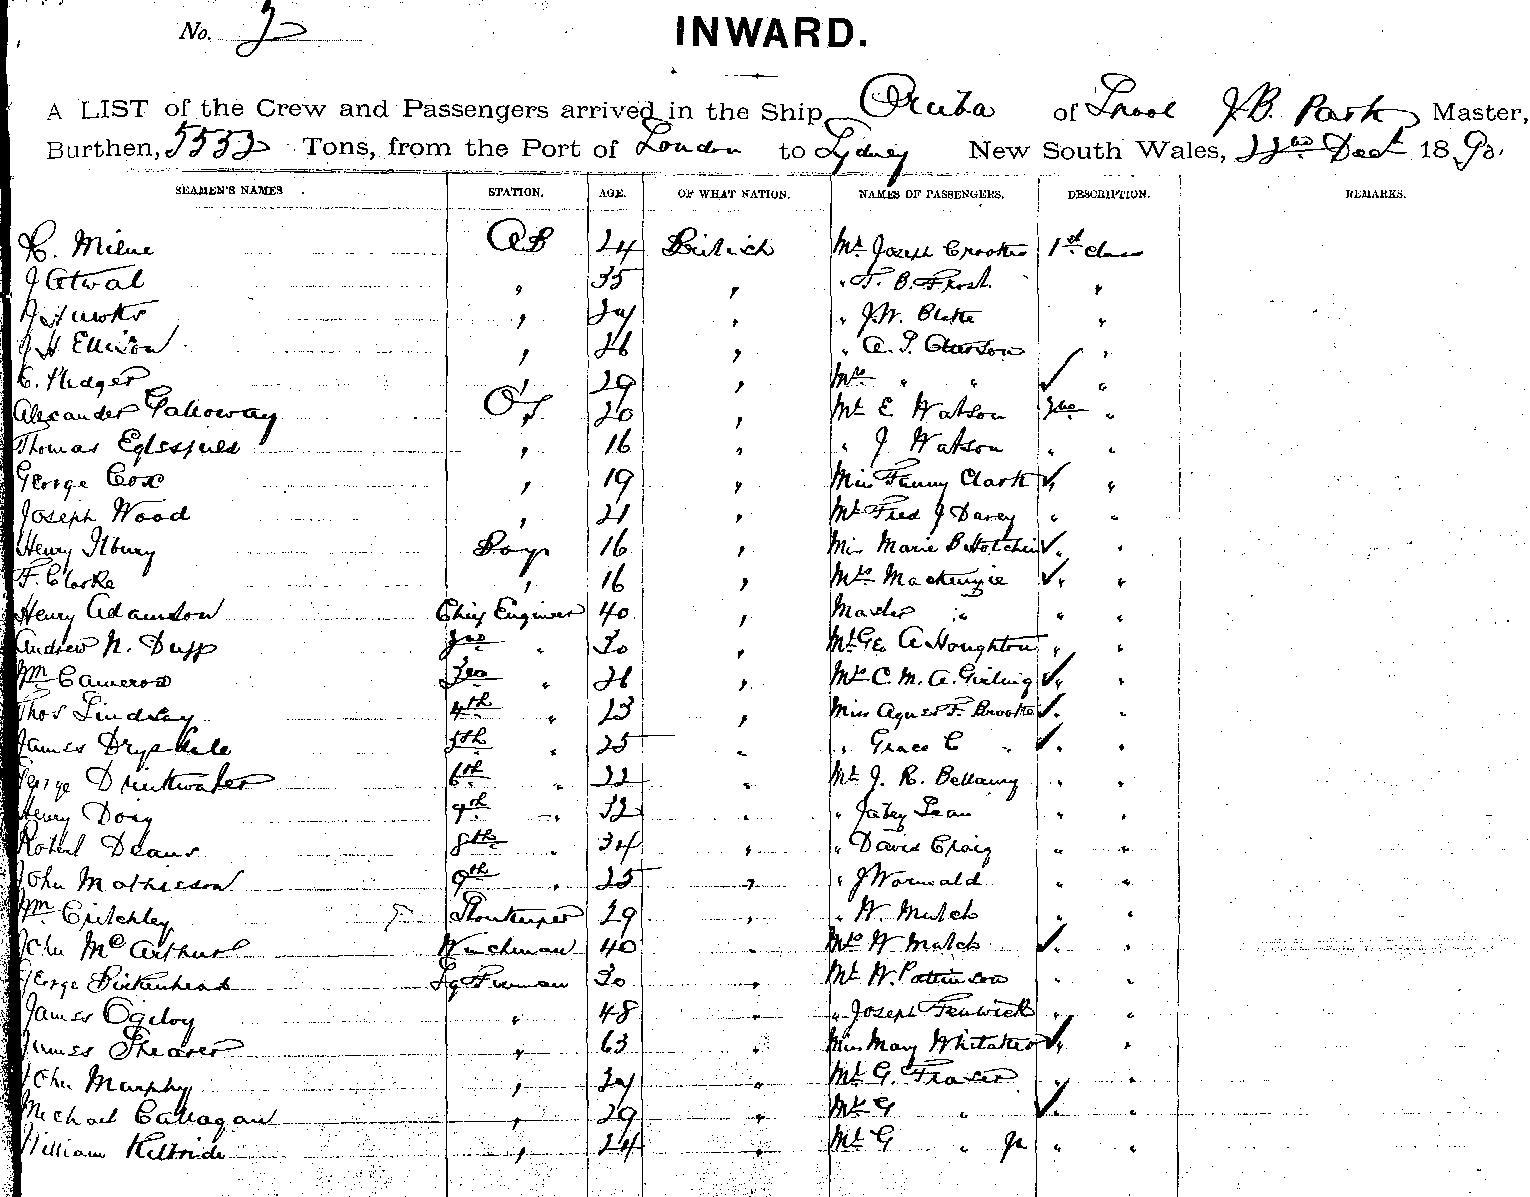 No. 2
INWARD.
A LIST of the Crew and Passengers arrived in the Ship Oruba of Lpool J.B. Park Master,
Burthen, 5552 Tons, from the Port of London to Sydney New South Wales, 22nd Dect 1890.
SEAMEN'S NAMES STATION. AGE. OF WHAT NATION. NAMES OF PASSENGERS. DESCRIPTION. REMARKS.
Milne AB 24 British Mr Joseph Crookes 1st class
J Atwal " 35 " " T. B. Frost "
" " " J.W. Blake "
J H Ellison " 26 " " A. P. "
" 29 " Mrs " " "
Alexander Galloway OS 20 " Mr E Watson 2nd "
Thomas " 16 " " J Watson " "
George Cox " 19 " Miss Fanny Clark " "
Joseph Wood " 21 " Mr Fred J Davey " "
Henry Ilbury Boys 16 " Miss Marie B Hotchin " "
F. Clarke " 16 " Mrs Mackenzie " "
Henry Adamson Chief Engineer 40 " Master " " "
Andrew N. Duff 2nd " 30 " Mr Geo A Houghton " "
Wm Cameron 3rd " 26 " Mrs C. M. A. Girling " "
Thos Lindsay 4th " 23 " Miss Agnes F. Brooke " "
James Drysdale 5th " 25 " " Grace C " " "
George Drinkwater 6th " 22 " Mr J. R. Bellamy " "
Henry Doig 7th " 32 " " Jabez Lean " "
Robert Deans 8th " 34 " " David Craig " "
John Mathieson 9th " 25 " " J Wormald " "
Wm Critchley Storekeeper 29 " " W. Mutch " "
John McArthur Winchman 40 " Mrs W Mutch " "
George Birkenhead Lg Fireman 30 " Mr W. Pattinson " "
James Ogilvy " 48 " " Joseph Fenwick " "
James Shearer " 63 " Miss Mary Whitaker " "
John Murphy " " Mr G. Fraser " "
Michael Callagan " 29 " Mrs G " " "
William Kilbride " 24 " Mr G " Jr " "